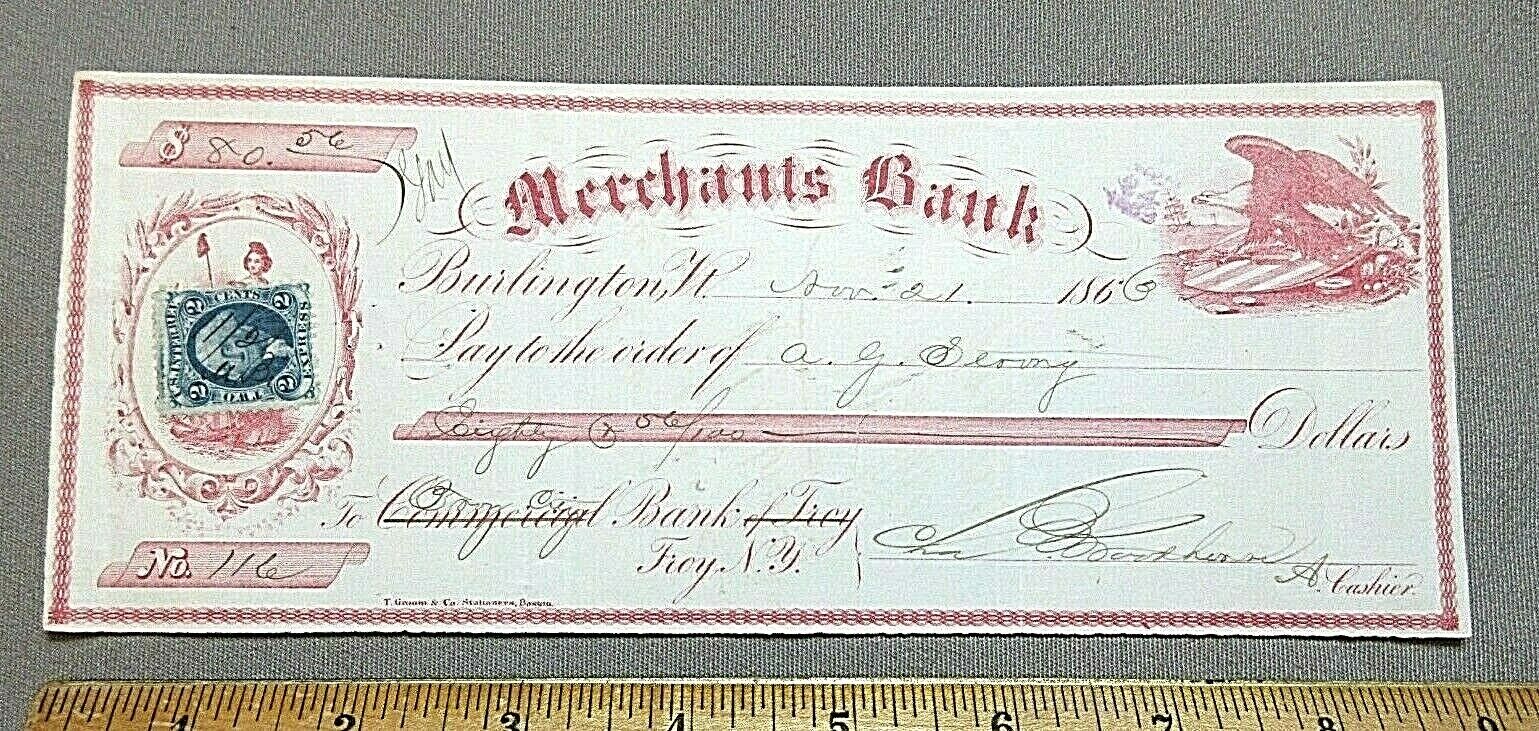 $ 80.56
Merchants Bank
Burlington, Vt. Nov. 21. 1866
Pay to the order of A. G.
Eighty & 56/100 Dollars
To Commercial Bank of Troy
Troy, N.Y.
A. Cashier.
No. 116
T. Groom & Co. Stationers, Boston.
2 CENTS 2
U.S. INTER. REV.
EXPRESS
2 TWO 2
1 2 3 4 5 6 7 8 9